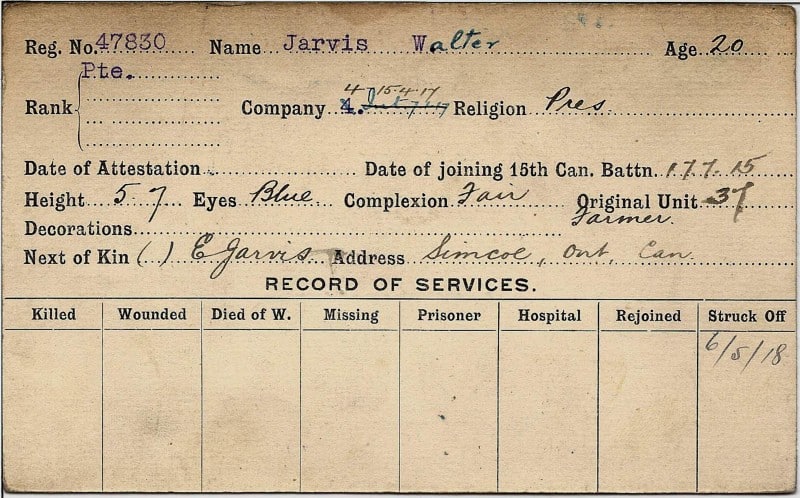 Reg. No. 47830 Name Jarvis Walter Age 20
Pte.
4 15.4.17
Rank Company 4. Religion Pres
Date of Attestation Date of joining 15th Can. Battn. 17.7.15
Height 5 7 Eyes Blue Complexion Fair Original Unit 37
Decorations Farmer.
Next of Kin ( ) E Jarvis Address Simcoe, Ont. Can.
RECORD OF SERVICES.
Killed Wounded Died of W. Missing Prisoner Hospital Rejoined Struck Off
6/5/18